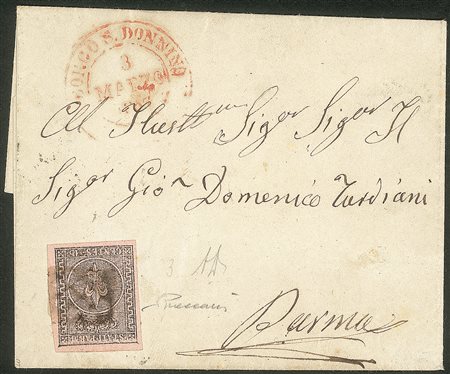 BORGO S. DONNINO
3
MARZO
All Illustt.mo Sigor Sigor Il
Sigor Gio.n Domenico Tardiani
3 AD
Parma